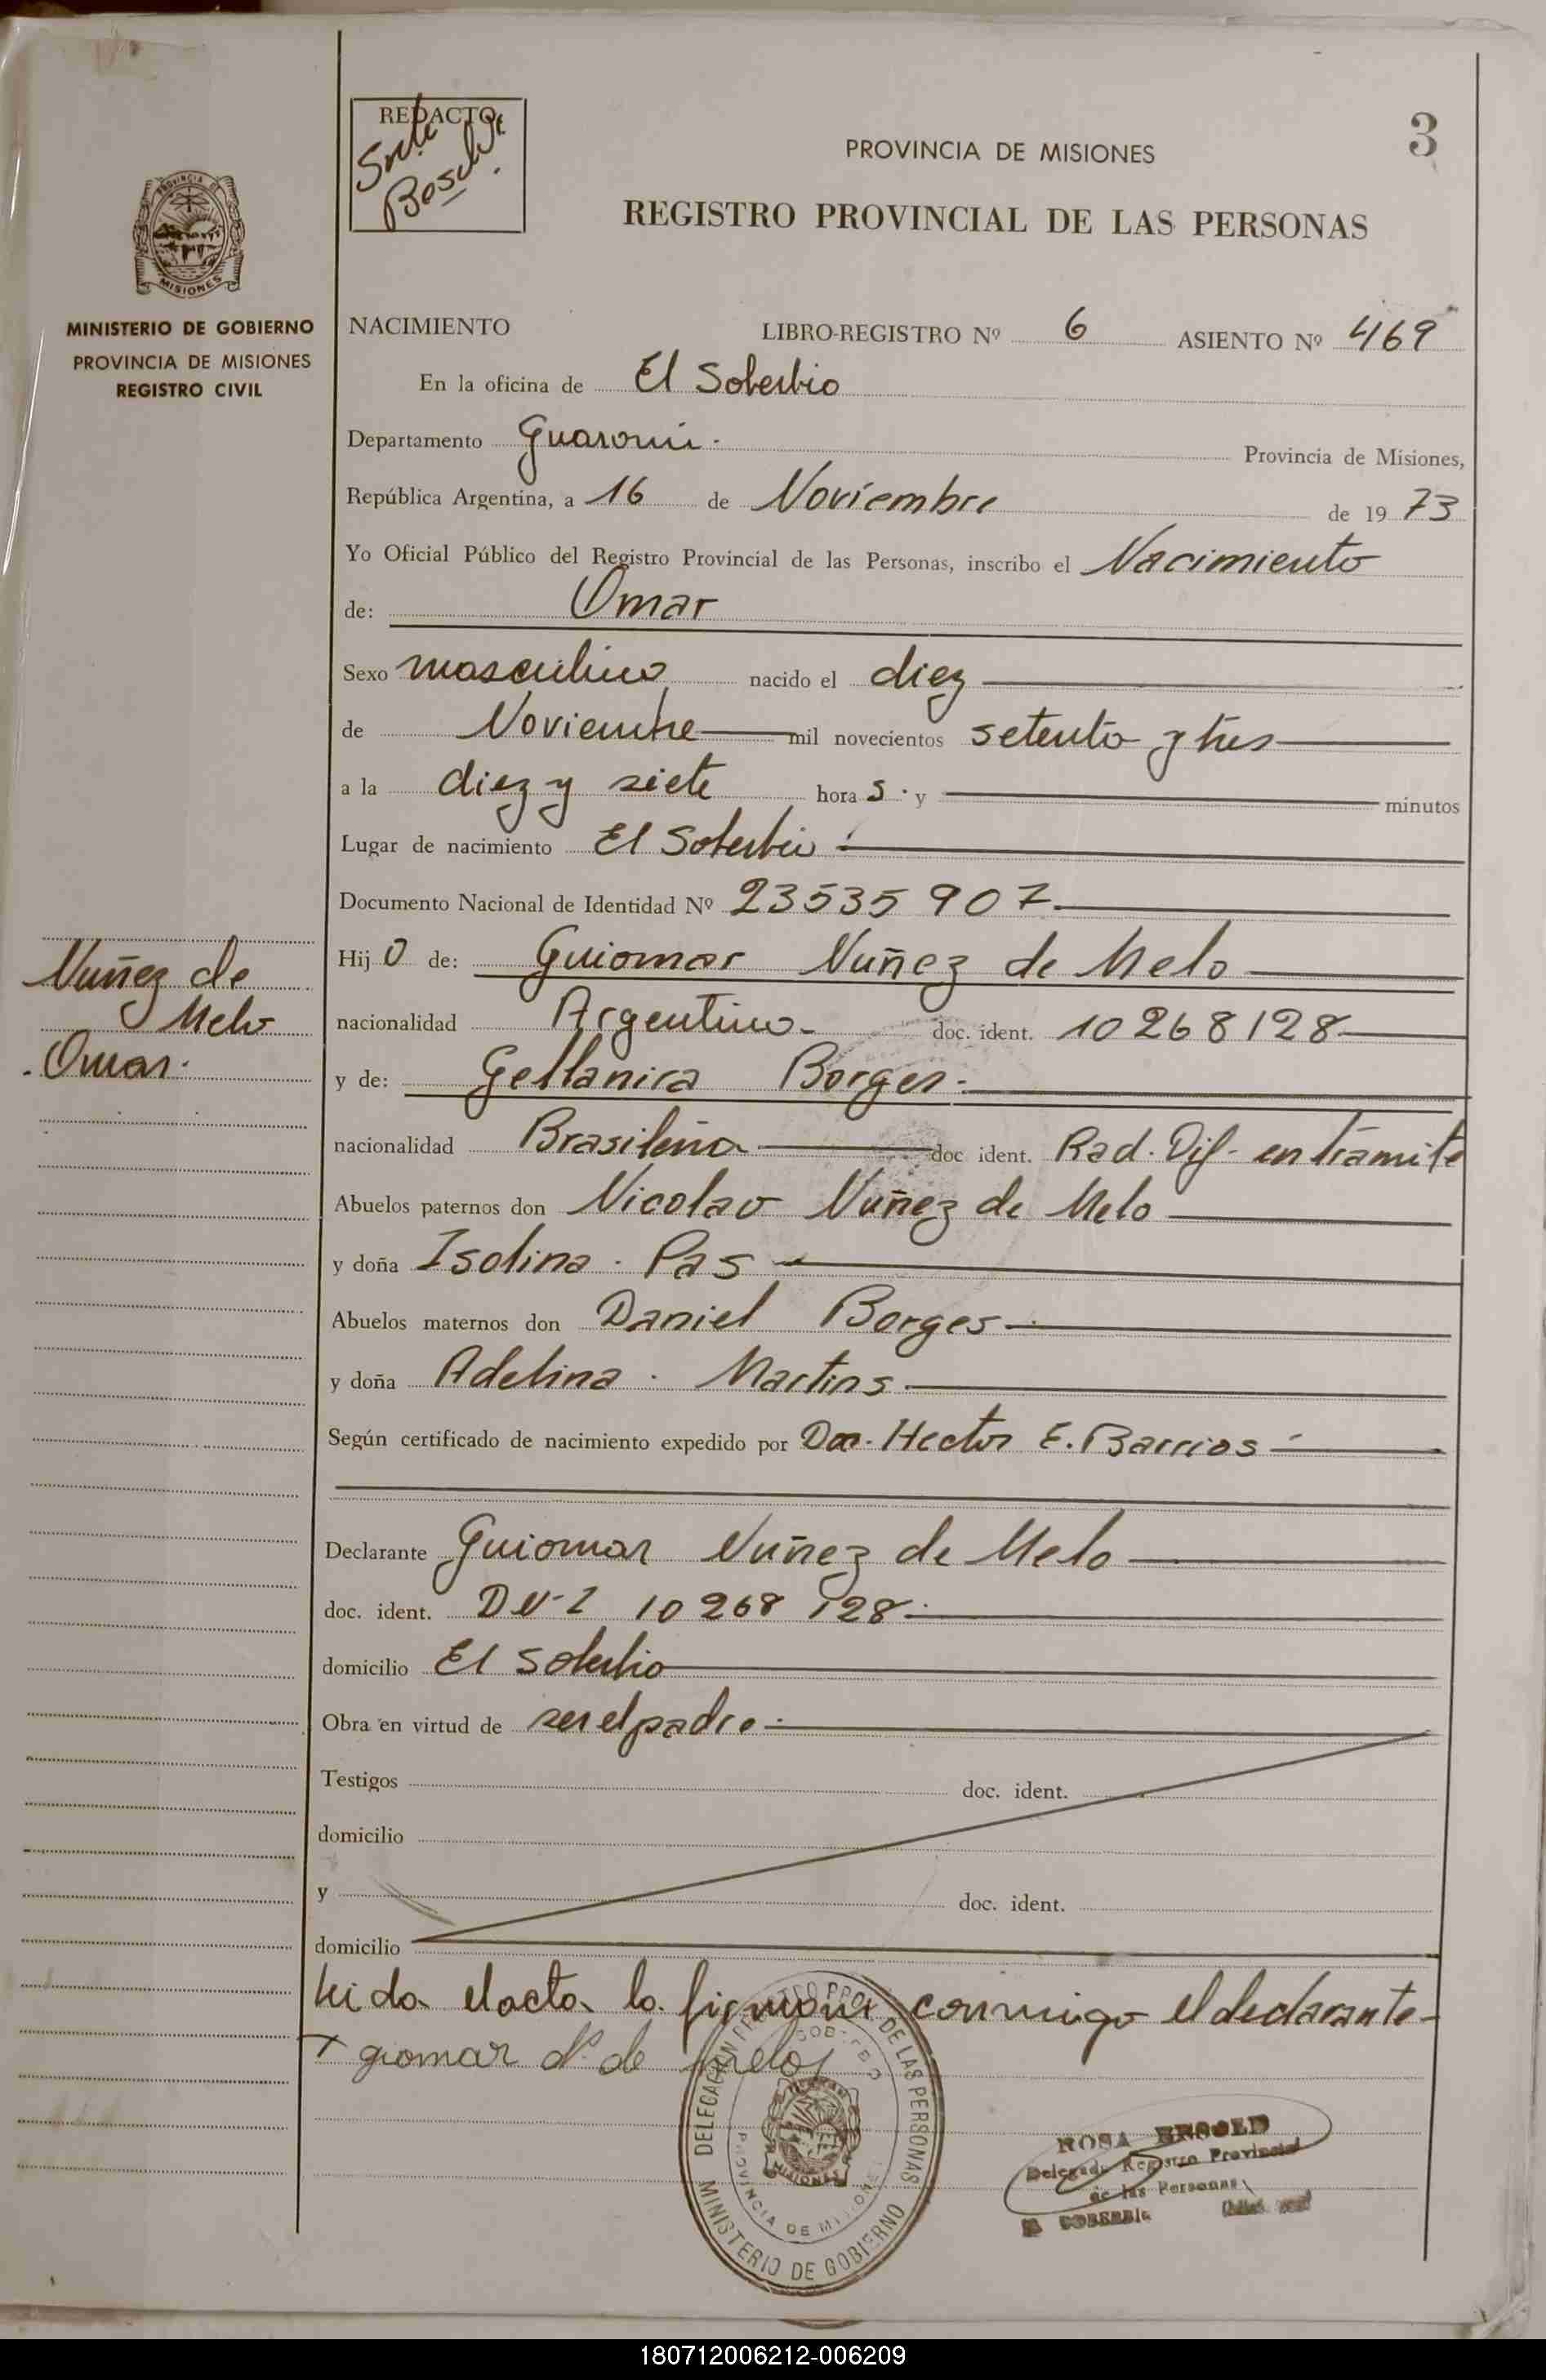 REDACTO
PROVINCIA DE MISIONES
3
REGISTRO PROVINCIAL DE LAS PERSONAS
PROVINCIA DE
MISIONES
MINISTERIO DE GOBIERNO
PROVINCIA DE MISIONES
REGISTRO CIVIL
NACIMIENTO LIBRO-REGISTRO Nº 6 ASIENTO Nº 469
En la oficina de El Soberbio
Departamento Guaraní. Provincia de Misiones,
República Argentina, a 16 de Noviembre de 19 73
Yo Oficial Público del Registro Provincial de las Personas, inscribo el Nacimiento
de: Omar
Sexo masculino nacido el diez
de Noviembre mil novecientos setenta y tres
a la diez y siete hora s. y minutos
Lugar de nacimiento El Soberbio
Documento Nacional de Identidad Nº 23535907
Hij o de: Guiomar Nuñez de Melo
Nuñez de
Melo
Omar.
nacionalidad Argentino doc. ident. 10268128
y de: Gellanira Borges
nacionalidad Brasileña doc. ident. Rad. Dif. en Tramite
Abuelos paternos don Nicolao Nuñez de Melo
y doña Isolina Pas
Abuelos maternos don Daniel Borges
y doña Adelina Martins
Según certificado de nacimiento expedido por Hector E. Barrios
Declarante Guiomar Nuñez de Melo
doc. ident. DNI 10268128
domicilio El Soberbio
Obra en virtud de ser el padre
Testigos doc. ident.
domicilio
y doc. ident.
domicilio
Leida el acta la firman conmigo el declarante
giomar de melo
DELEGACION REGISTRO PROV. DE LAS PERSONAS
MINISTERIO DE GOBIERNO
PROVINCIA DE MISIONES
MISIONES
ROSA
Delegada Registro Provincial
de las Personas
SOBERBIO
180712006212-006209